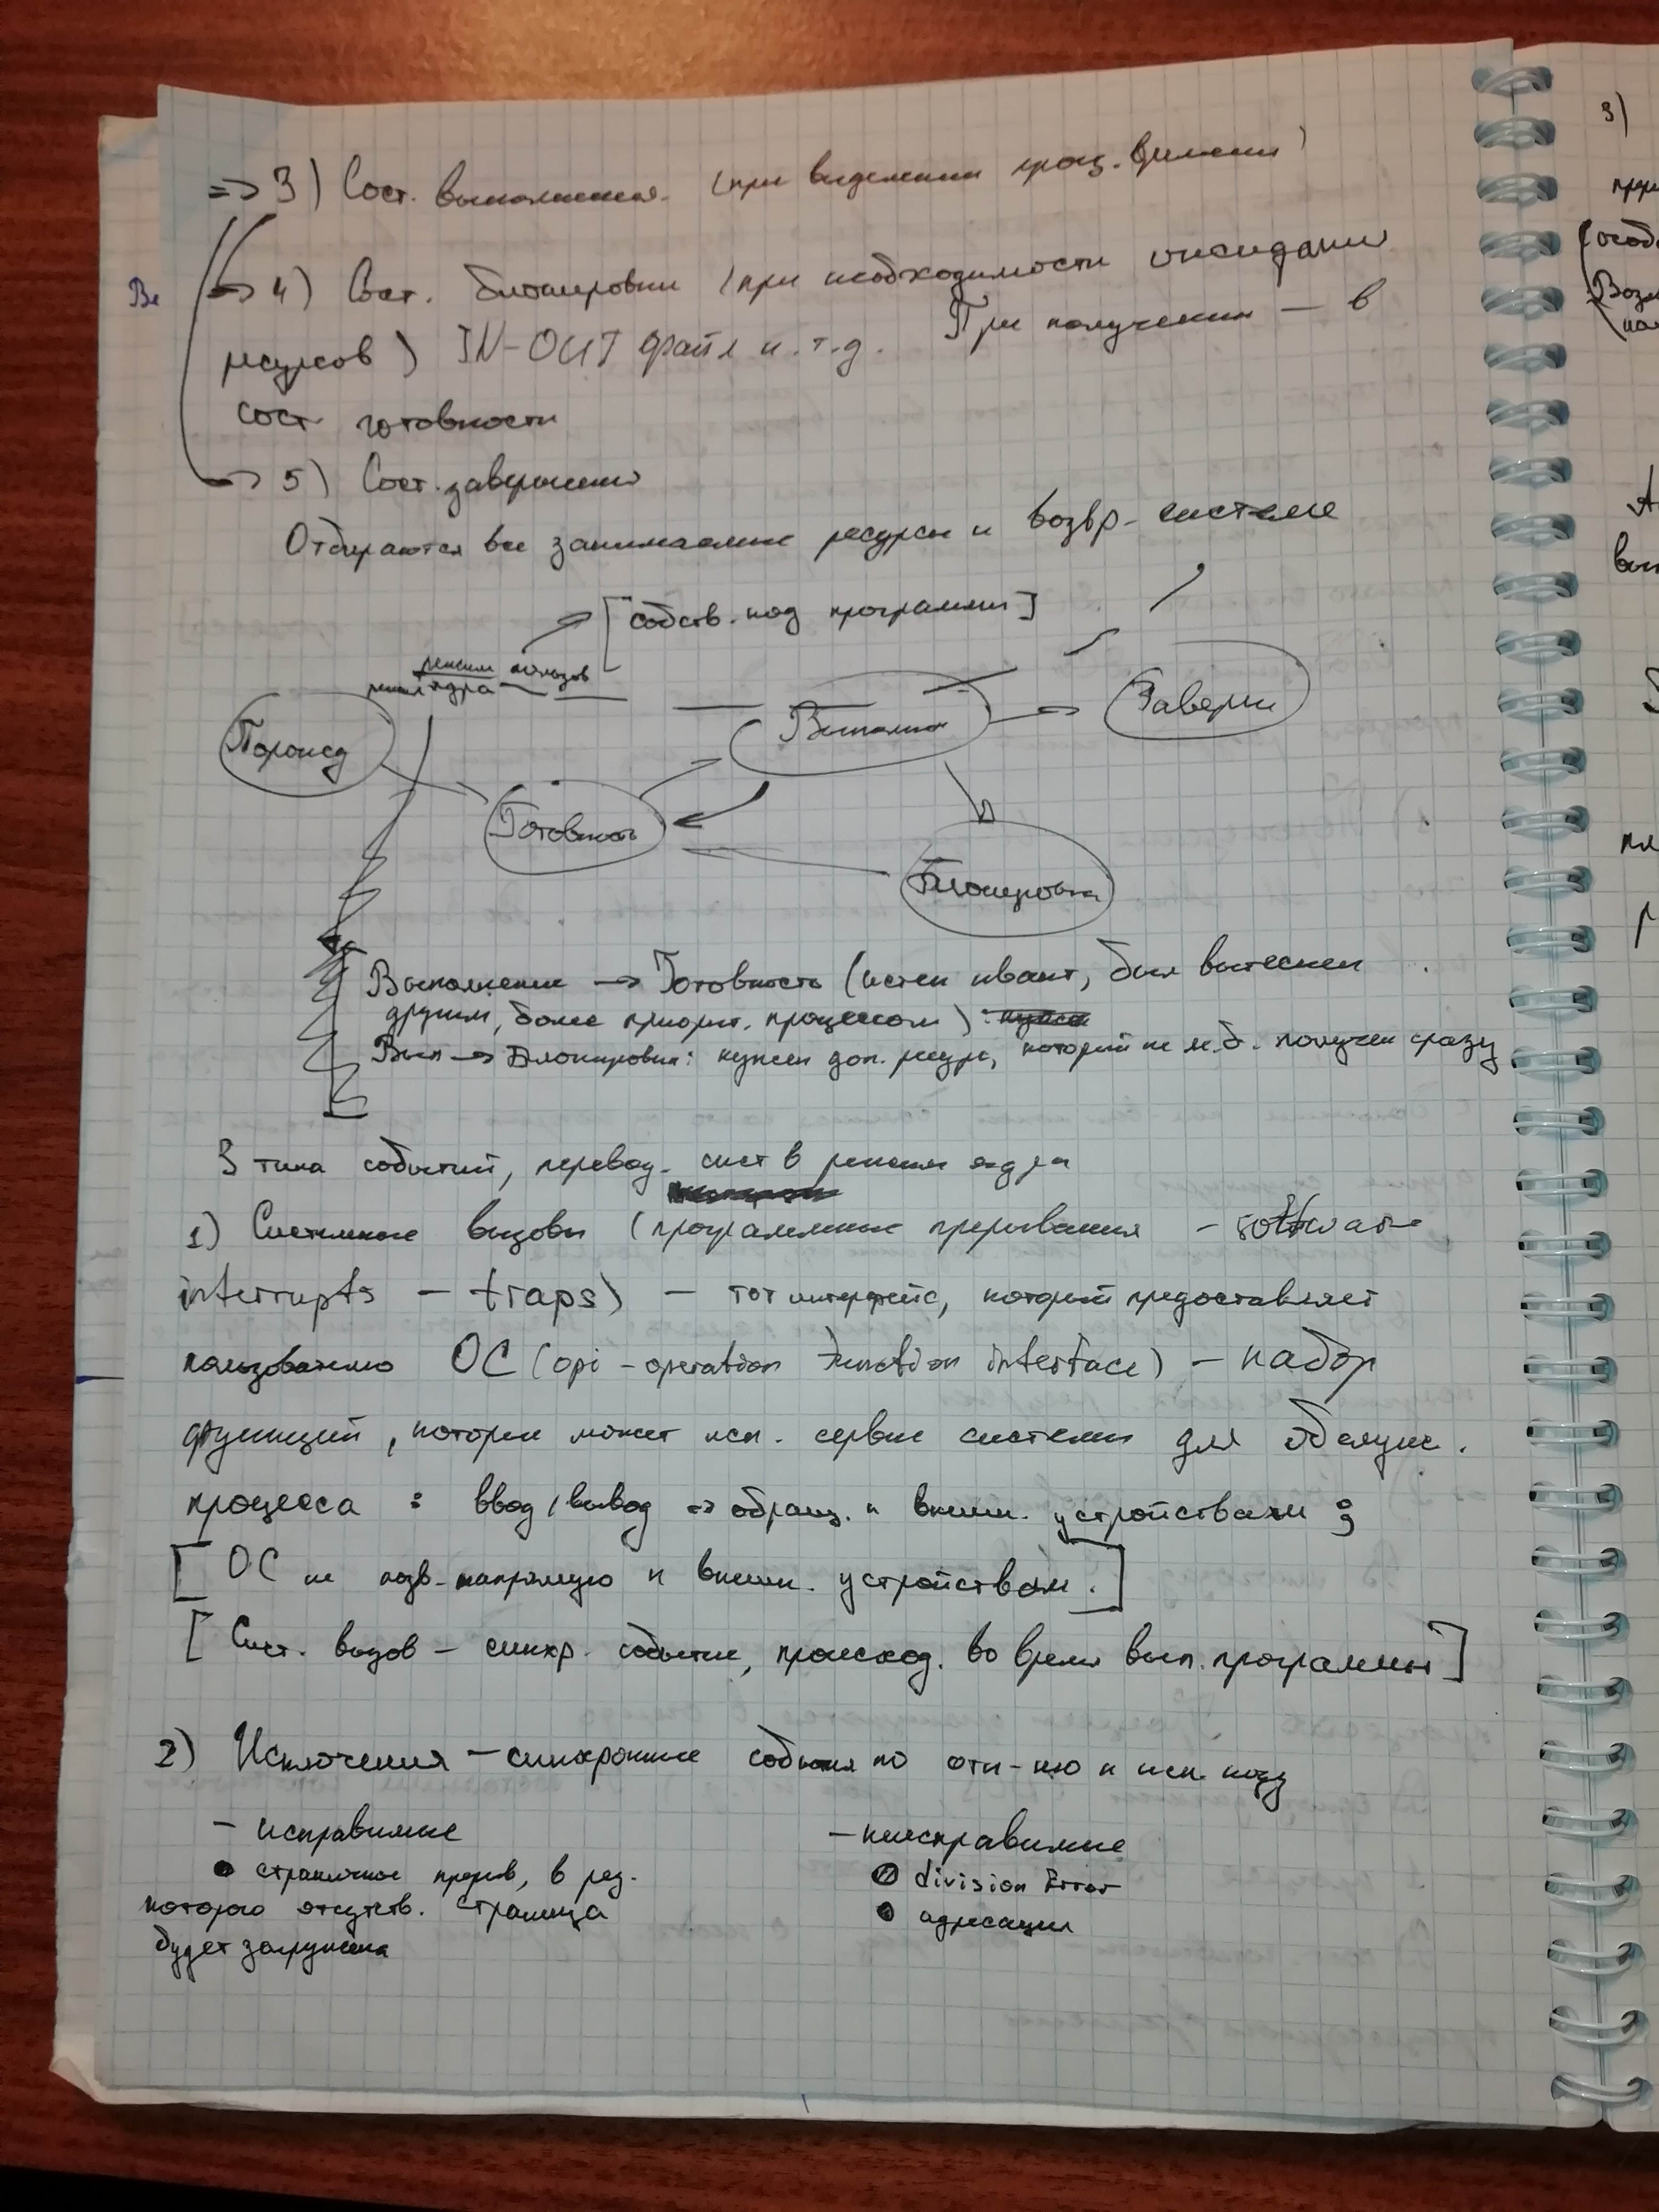 => 3) Сост. выполнения. (при выделении проц. времени)
-> 4) Сост. блокировки (при необходимости ожидания
ресурсов) IN-OUT файл и.т.д. При получении — в
сост готовности
-> 5) Сост. завершения
Отбираются все занимаемые ресурсы и возвр. системе
[собств. код программы]
режим пользов
режим ядра
Порожд
Готовность
Выполнен
Заверш
Блокировка
Выполнение -> Готовность (истек квант, был вытеснен
другим, более приорит. процессом)
Вып -> Блокировка: нужен доп. ресурс, который не м.б. получен сразу
3 типа событий, перевод. сист в режим ядра
1) Системные вызовы (программные прерывания - software
interrupts - traps) - тот интерфейс, который предоставляет
пользователю ОС (api - operation function interface) - набор
функций, которые может исп. сервис системы для обслуж.
процесса : ввод/вывод => обращ. к внешн. устройствам ;
[ ОС не позв. напрямую к внешн. устройствам. ]
[ Сист. вызов - синхр. событие, происход. во время вып. программы ]
2) Исключения - синхронные события по отн-ию к исп. коду
- исправимые
• страничное прерыв, в рез.
которого отсутств. страница
будет загружена
- неисправимые
• division Error
• адресации
3)